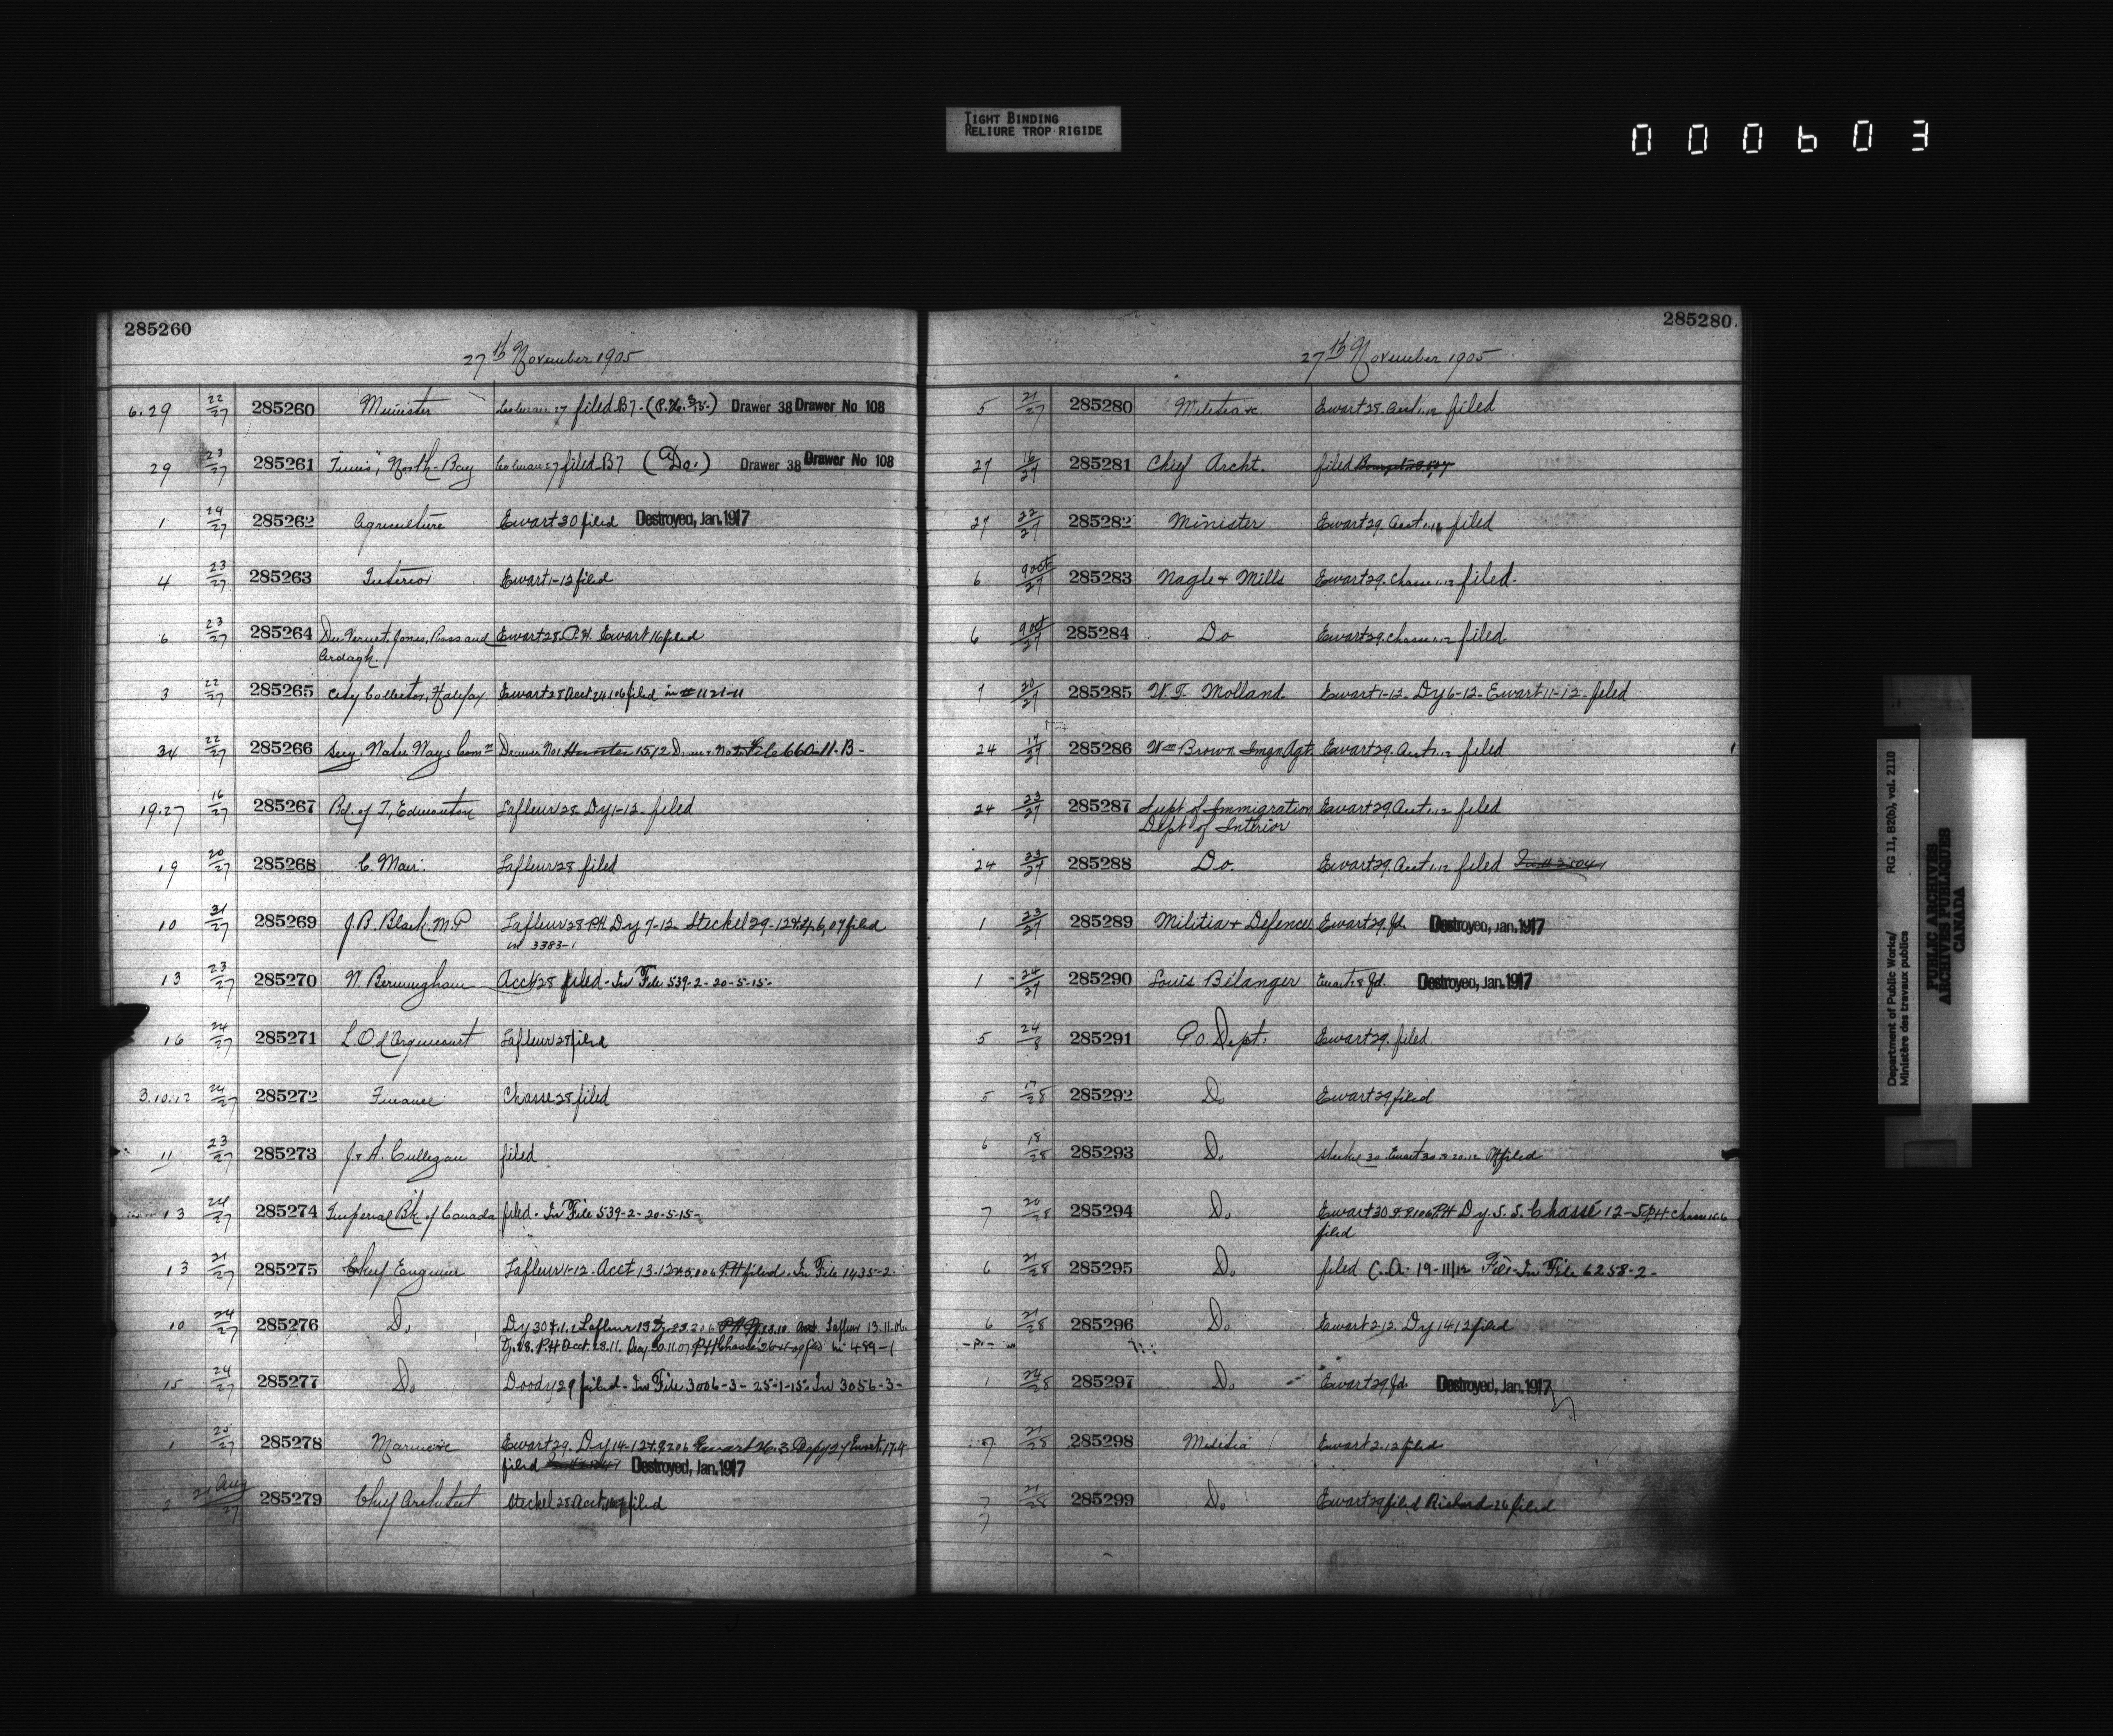 TIGHT BINDING
RELIURE TROP RIGIDE
000603
285260
27th November 1905
6.29 22/27 285260 Minister Coleman 27 filed B7. Drawer 38 Drawer No 108
29 23/27 285261 "Times", North-Bay Coleman 27 filed B7 (Do.) Drawer 38 Drawer No 108
1 24/27 285262 Agriculture Ewart 30 filed Destroyed, Jan. 1917
4 23/27 285263 Interior Ewart 1-12 filed
6 23/27 285264 Du Vernet, Jones, Ross and Ewart 28. P.H. Ewart 16 filed
Ardagh.
3 22/27 285265 City Collector, Halifax Ewart 28 Acct 24/1/06 filed in # 1121-11
34 22/27 285266 Secy. Water Ways Comn Drawer No 1 15/12 File 660-11-B-
19.27 16/27 285267 Bd. of T., Edmonton Lafleur 28 Dy 1-12 filed
19 20/27 285268 C. Mair. Lafleur 28 filed
10 21/27 285269 J.B. Black, M.P Lafleur 28 P.H. Dy 7-12 Steckel 29-12 filed
in 3383-1
13 23/27 285270 N. Bermingham Acct 28 filed - In File 539-2-20-5-15-
16 24/27 285271 L.O. d'Argencourt Lafleur 28 filed
3.10.12 24/27 285272 Finance Chasse 28 filed
11 23/27 285273 J. & A. Culligan filed
13 24/27 285274 Imperial Bk of Canada filed - In File 539-2-20-5-15-
13 21/27 285275 Chief Engineer Lafleur 1-12 Acct 13-12 P.H. filed. In File 1435-2
10 24/27 285276 Do Dy 30 Lafleur Acct Lafleur 13.11.06
P.H Acct. 28.11. P.H Chasse filed in 489-1
15 24/27 285277 Do Doody 29 filed - In File 3006-3-25-1-15- In 3056-3-
1 25/27 285278 Marine Ewart 29. Dy 14-12 Ewart 26.3 Ewart 17.4
filed Destroyed, Jan. 1917
2 Aug/27 285279 Chief Architect Steckel 28 Acct filed
285280
27th November 1905
5 21/27 285280 Militia &c Ewart 29. Acct 1.12 filed
27 16/27 285281 Chief Archt. filed
27 22/27 285282 Minister Ewart 29. Acct 1.12 filed
6 9 oct/27 285283 Nagle & Mills Ewart 29. Chasse 1.12 filed.
6 9 oct/27 285284 Do Ewart 29. Chasse 1.12 filed.
7 20/27 285285 W.T. Molland. Ewart 1-12- Dy 6-12- Ewart 11-12- filed
24 17/27 285286 Wm Brown Imgn Agt. Ewart 29. Acct 1.12 filed
24 23/27 285287 Supt of Immigration Ewart 29. Acct 1.12 filed
Dept of Interior
24 23/27 285288 Do. Ewart 29. Acct 1.12 filed
1 23/27 285289 Militia & Defence Ewart 29. fd. Destroyed, Jan. 1917
1 24/27 285290 Louis Bélanger Ewart 28 fd. Destroyed, Jan. 1917
5 24/8 285291 P.O. Dept. Ewart 29. filed
5 17/28 285292 Do Ewart 29 filed
6 18/28 285293 Do Steckel 30. Ewart 30 filed
7 20/28 285294 Do Ewart 30 P.H Dy. S.S. Chassé 12-5 P.H. Chasse 15.6
filed
6 21/28 285295 Do filed C.A. 19-11/12 In File 6258-2-
6 21/28 285296 Do Ewart 2.12. Dy 14.12 filed
1 24/28 285297 Do Ewart 29 fd. Destroyed, Jan. 1917
7 21/28 285298 Militia Ewart 2.12 filed
7 21/28 285299 Do Ewart 29 filed Richard 26 filed
7
Department of Public Works/ RG 11, B2(b), vol. 2110
Ministère des travaux publics
PUBLIC ARCHIVES
ARCHIVES PUBLIQUES
CANADA